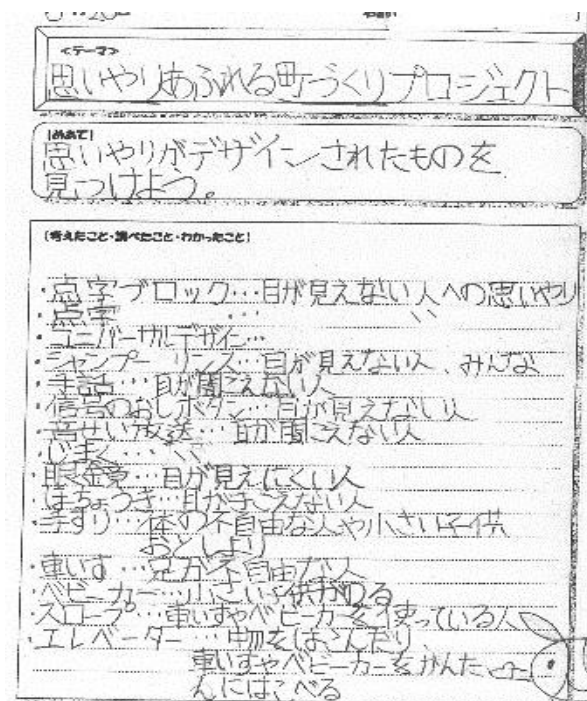 <テーマ>
思いやりあふれる町づくりプロジェクト
[めあて]
思いやりがデザインされたものを
見つけよう。
[考えたこと・調べたこと・わかったこと]
・点字ブロック…目が見えない人への思いやり
・点字 … 〃
・ユニバーサルデザイン…
・シャンプー リンス…目が見えない人、みんな
・手話…耳が聞こえない人
・信号のおしボタン…目が見えない人
・音せい放送…耳が聞こえない人
・じまく… 〃
・眼鏡…目が見えにくい人
・ほちょうき…耳が聞こえない人
・手すり…体の不自由な人や小さい子供
おとしより
・車いす…足が不自由な人
・ベビーカー…小さい子供がのる
・スロープ…車いすやベビーカーを使っている人
・エレベーター…物をはこんだり、
車いすやベビーカーをかんた
んにはこべる